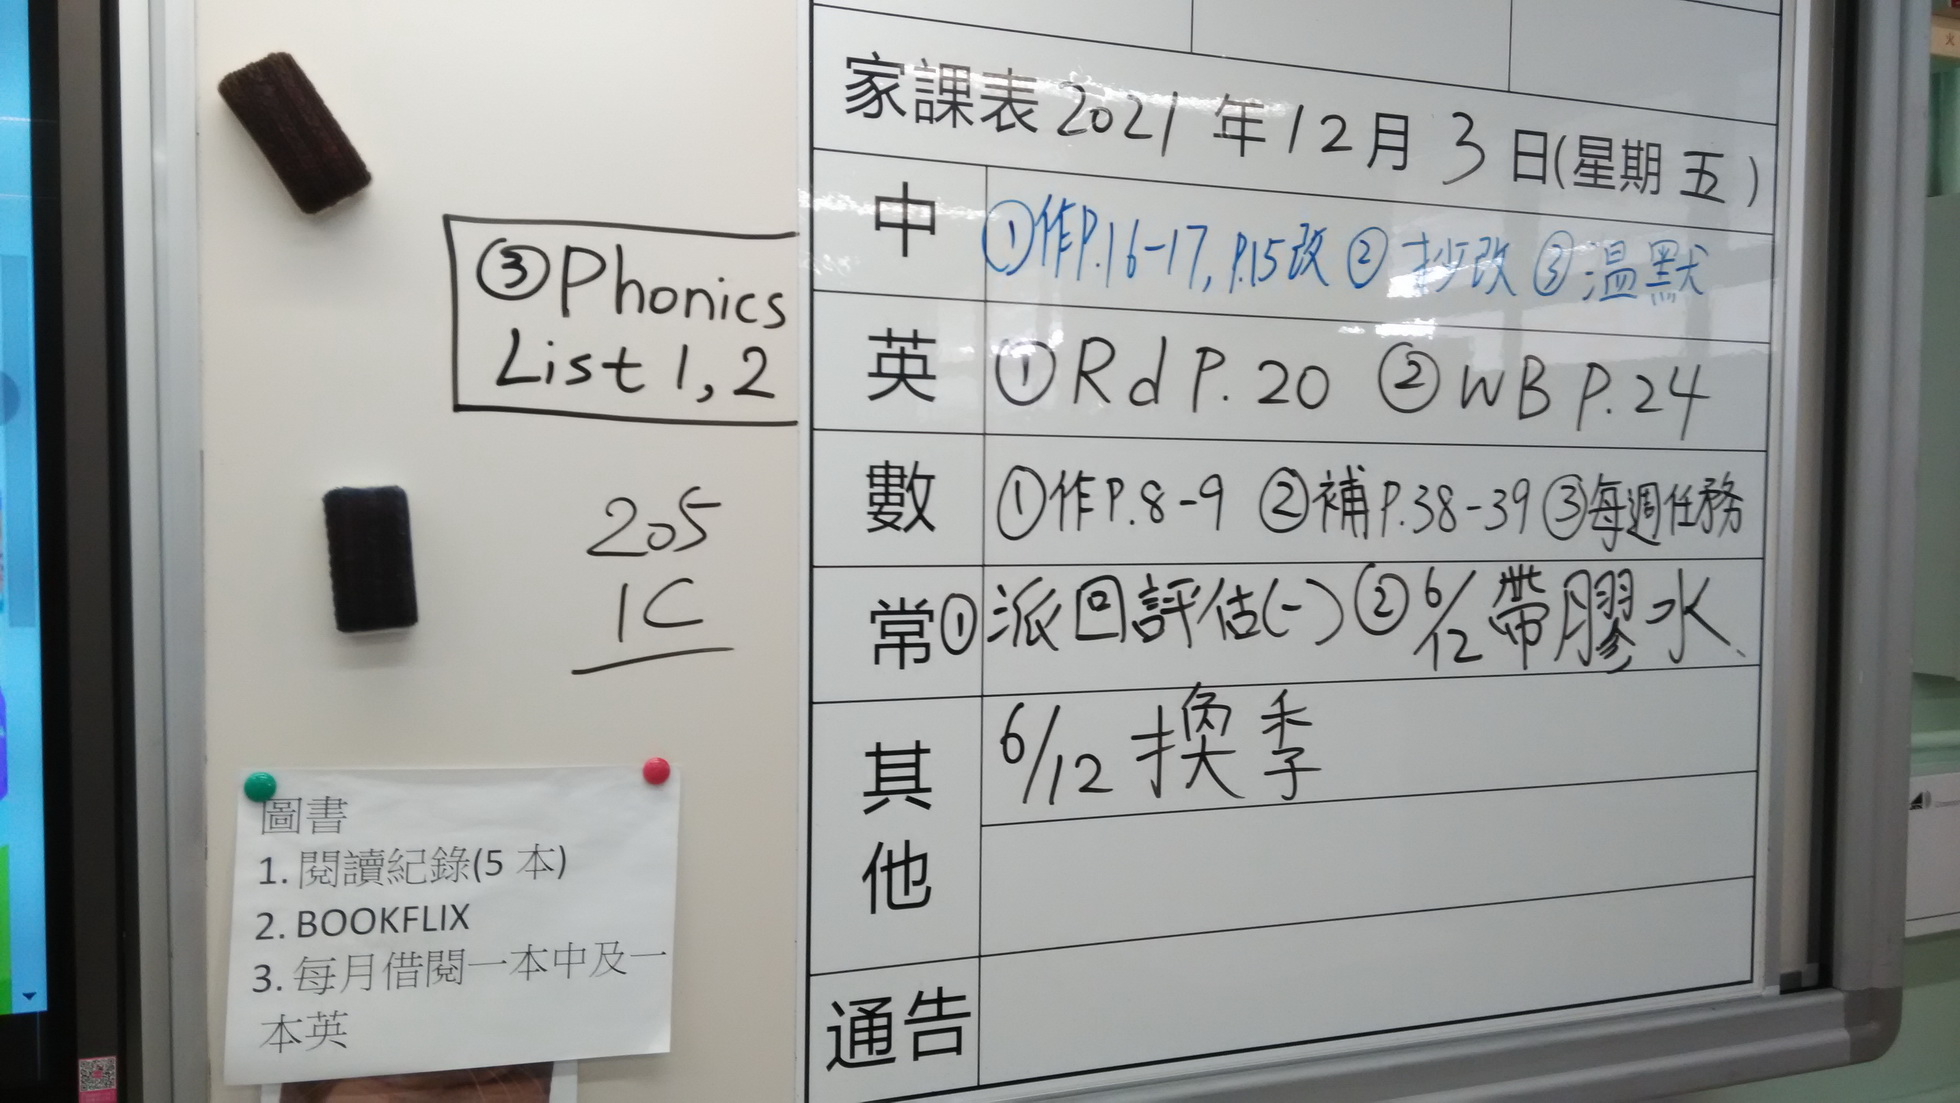 家課表 2021 年 12 月 3 日(星期 五)
中 ①作P.16-17, P.15改 ② 抄改 ③ 溫默
英 ① Rd P. 20 ② WB P. 24
數 ①作P.8-9 ②補P.38-39 ③每週任務
常 ①派回評估(一) ②6/12 帶膠水
其他 6/12 換季
通告
③Phonics
List 1, 2
205
1C
圖書
1. 閱讀紀錄(5 本)
2. BOOKFLIX
3. 每月借閱一本中及一
本英